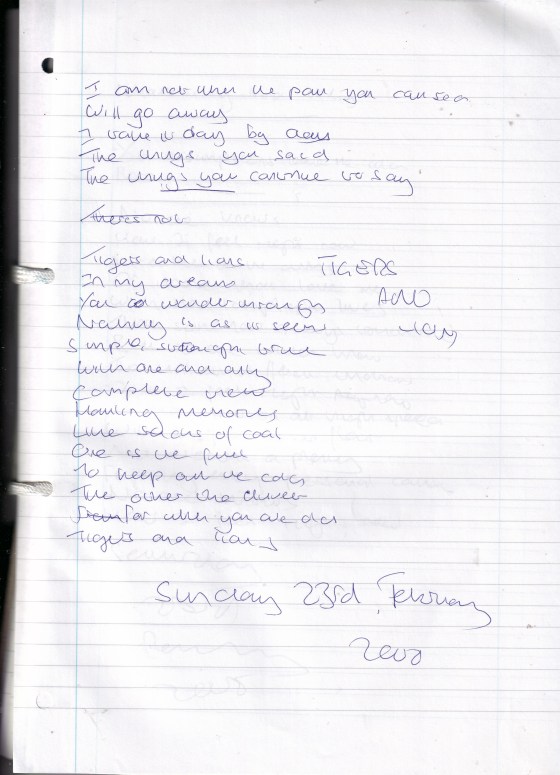 I am not when we pain you can see
Will go away
I wake to day by days
The things you said
The things you continue to say
Theres not
Tigers and lions TIGERS
In my dreams
You wander through AND
Nothing is as it seems lions
Simple, straight
With one and only
Complete view
Hauling memories
Like sacks of coal
One is the fuel
To keep out the cold
The other the
for when you are old
Tigers and lions
Sunday 23rd February
2000